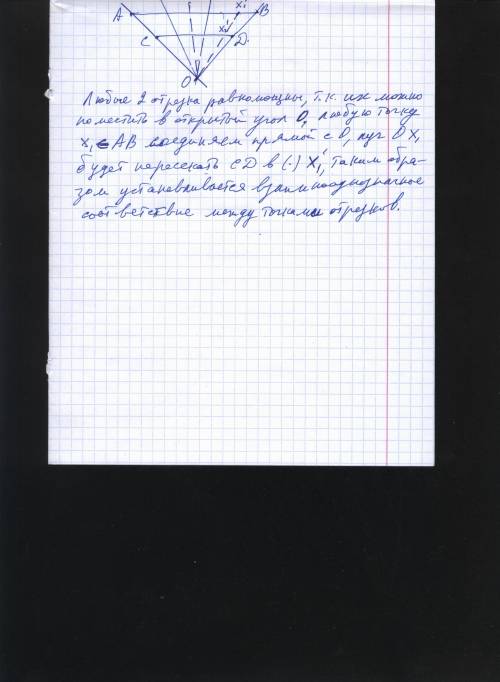 A B x₁
C x₁' D.
O
Любые 2 отрезка равномощны, т.к. их можно
поместить в открытый угол O, любую точку
x₁ ∈ AB соединяем прямой с O, луч O x₁
будет пересекать CD в (·) X₁', таким обра-
зом устанавливается взаимнооднозначное
соответствие между точками отрезков.